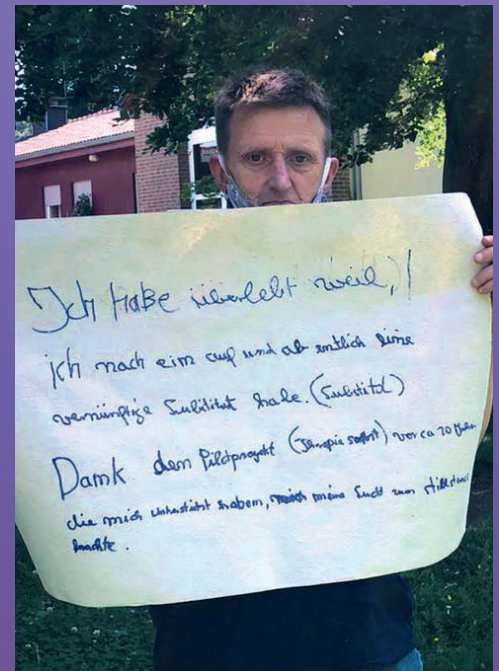 Ich Habe überlebt weil,!
ich nach eim auf und ab entlich eine
vernünftige Subititut habe. (Substitol)
Damk dem Pilotprojekt (Therapie sofort) vor ca 20 Jahren
die mich unterstützt habem, meine Sucht zum stillstand
brachte.